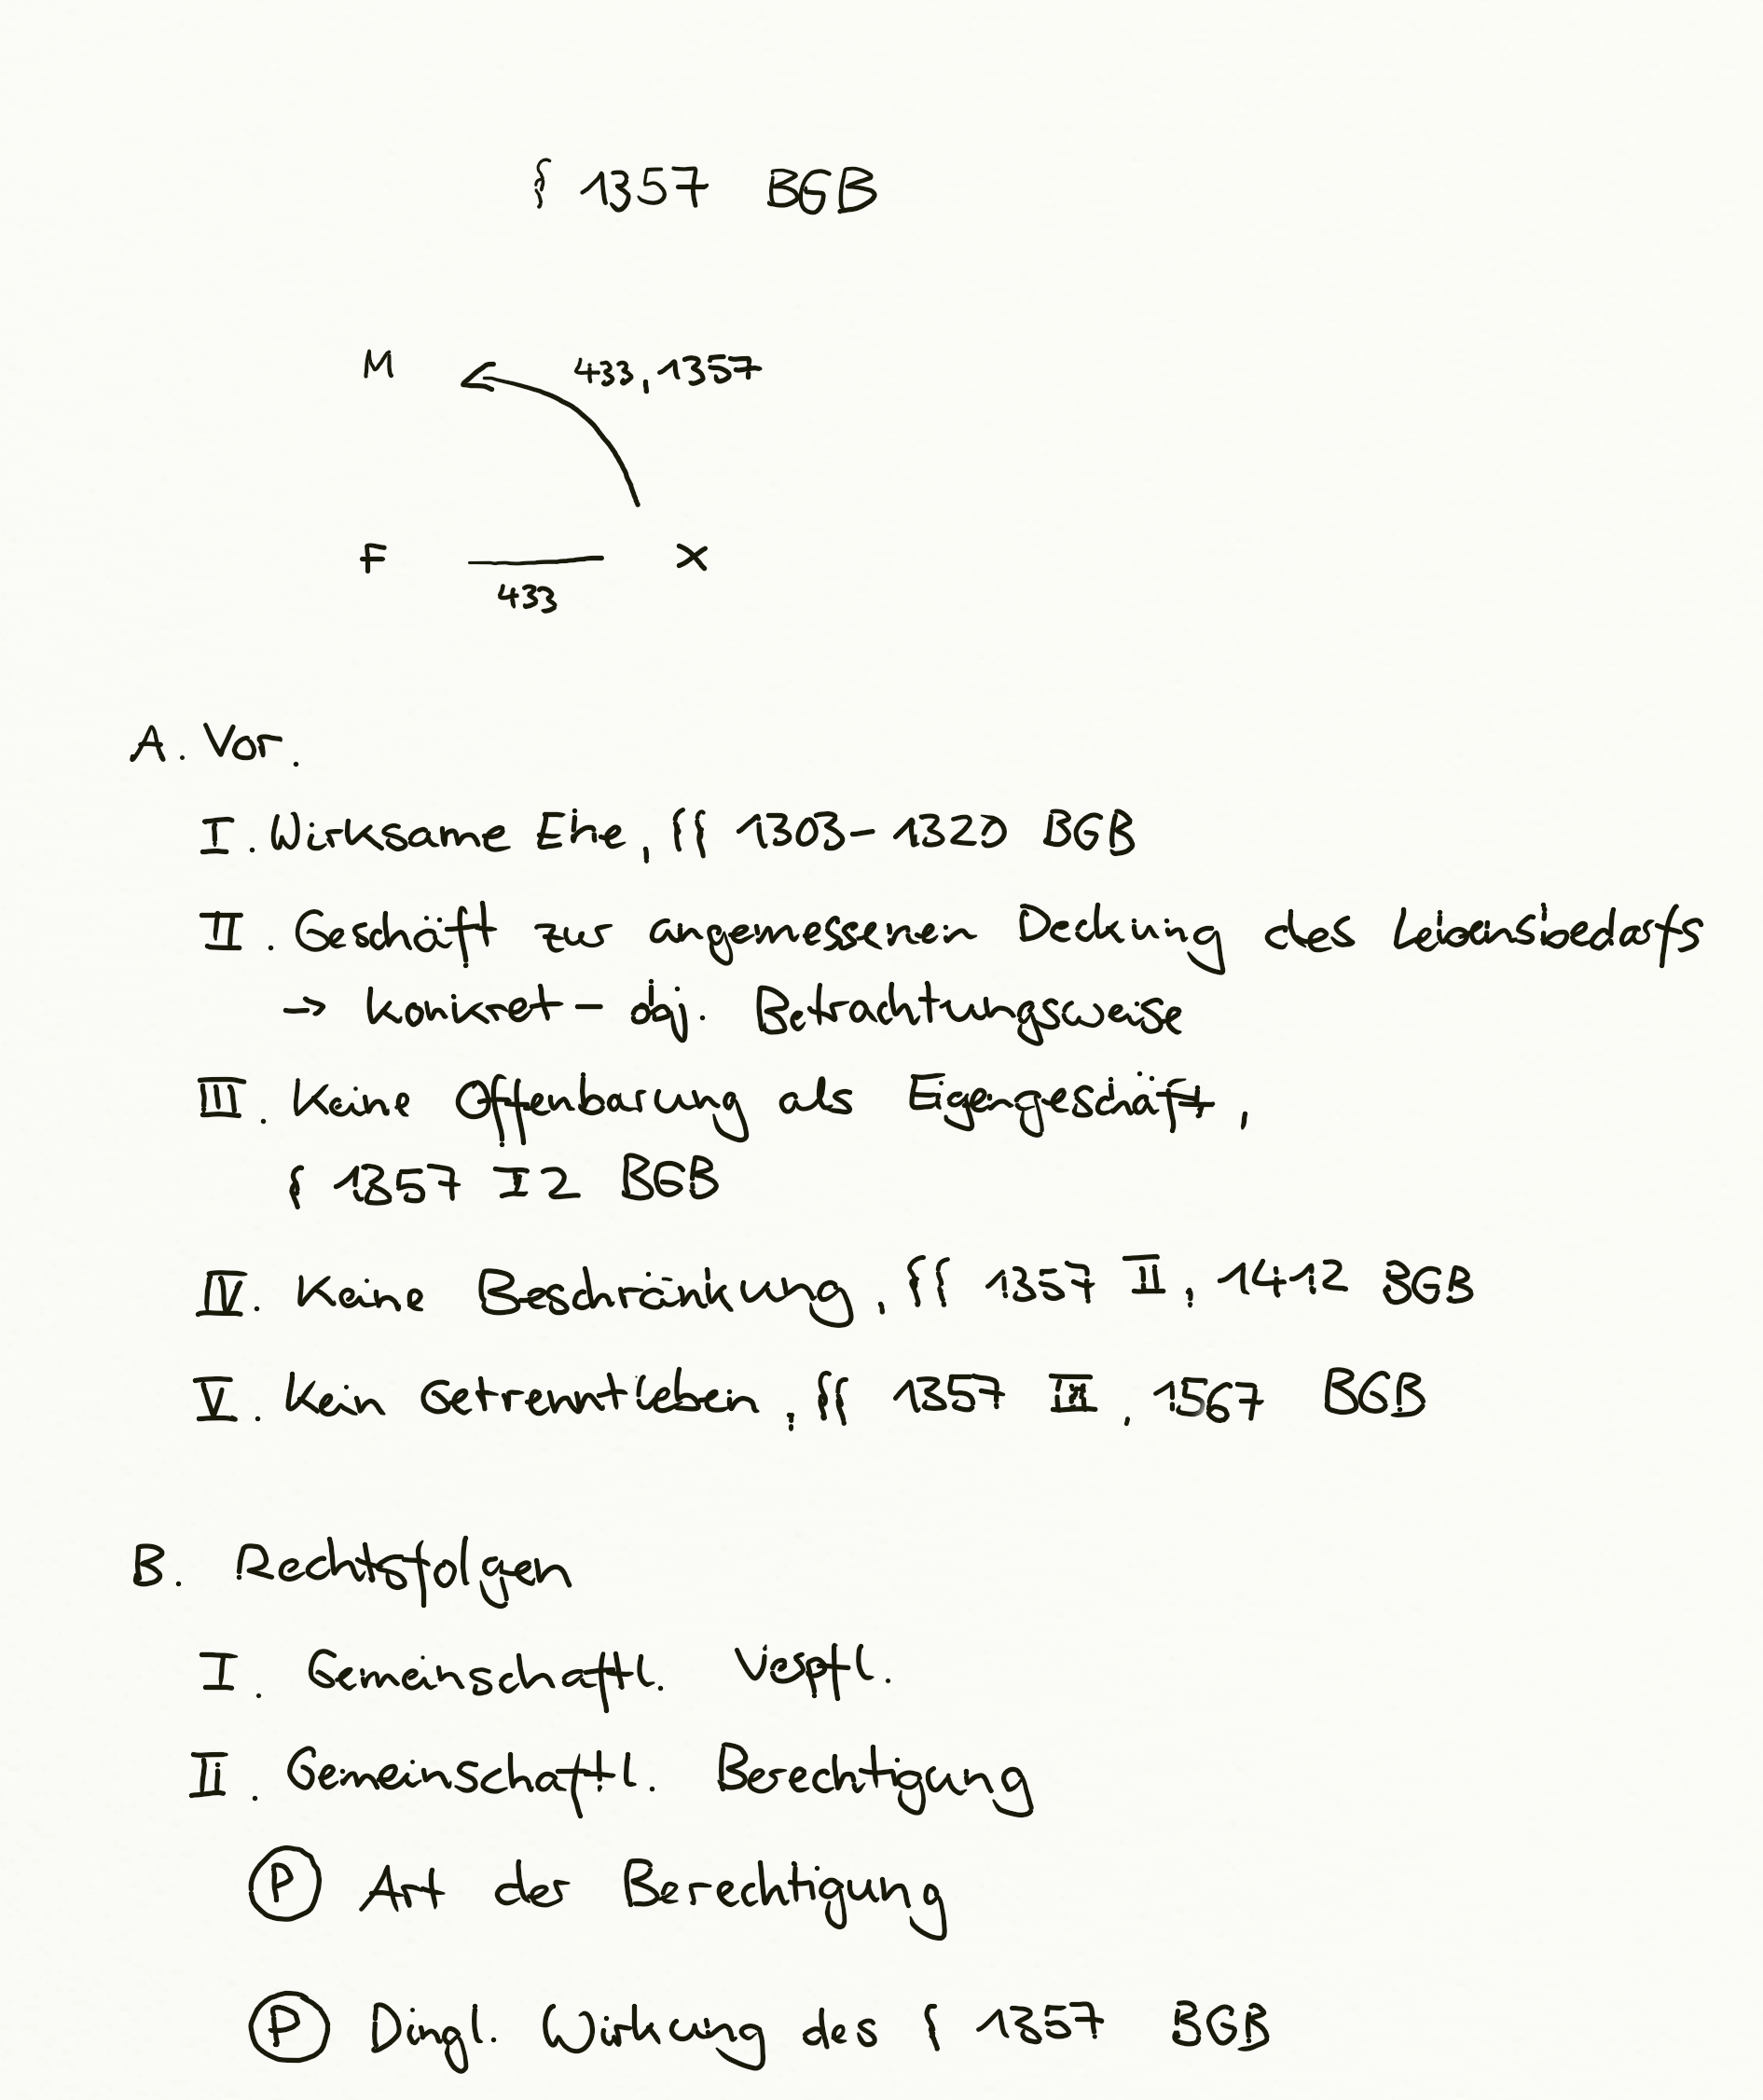 § 1357 BGB
M
433, 1357
F
X
433
A. Vor.
I. Wirksame Ehe, §§ 1303-1320 BGB
II. Geschäft zur angemessenen Deckung des Lebensbedarfs
→ konkret - obj. Betrachtungsweise
III. Keine Offenbarung als Eigengeschäft,
§ 1357 I 2 BGB
IV. Keine Beschränkung, §§ 1357 II, 1412 BGB
V. Kein Getrenntleben, §§ 1357 III, 1567 BGB
B. Rechtsfolgen
I. Gemeinschaftl. Verpfl.
II. Gemeinschaftl. Berechtigung
P Art der Berechtigung
P Dingl. Wirkung des § 1357 BGB